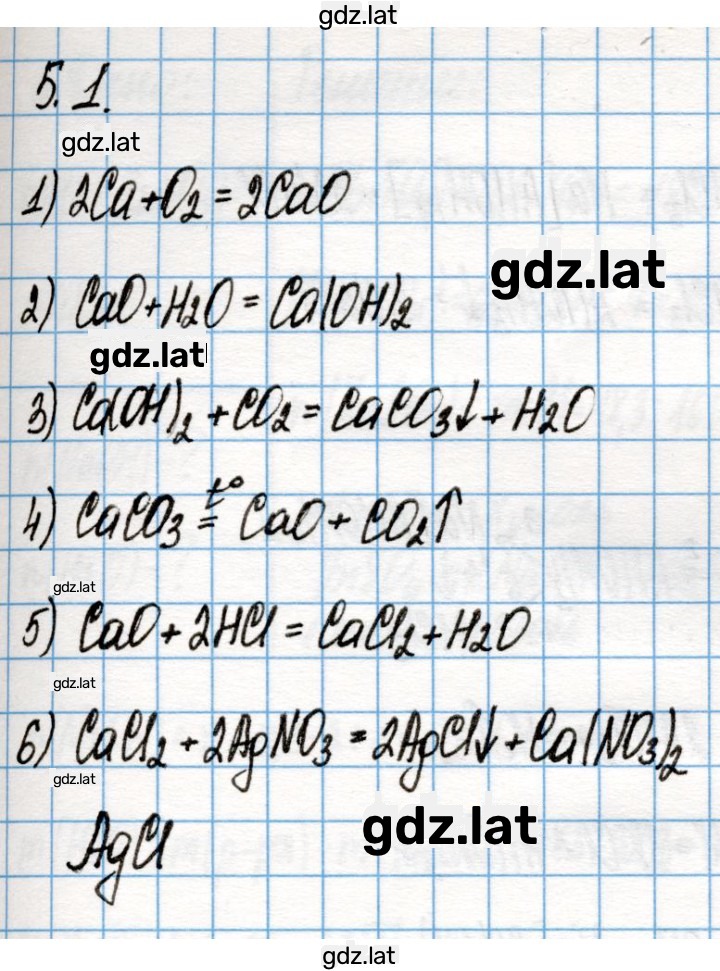 gdz.lat
5.1.
gdz.lat
1) 2Ca+O₂=2CaO
gdz.lat
2) CaO+H₂O=Ca(OH)₂
gdz.lat
3) Ca(OH)₂+CO₂=CaCO₃↓+H₂O
4) CaCO₃ =^t° CaO+CO₂↑
gdz.lat
5) CaO+2HCl=CaCl₂+H₂O
gdz.lat
6) CaCl₂+2AgNO₃=2AgCl↓+Ca(NO₃)₂
gdz.lat
gdz.lat
AgCl
gdz.lat